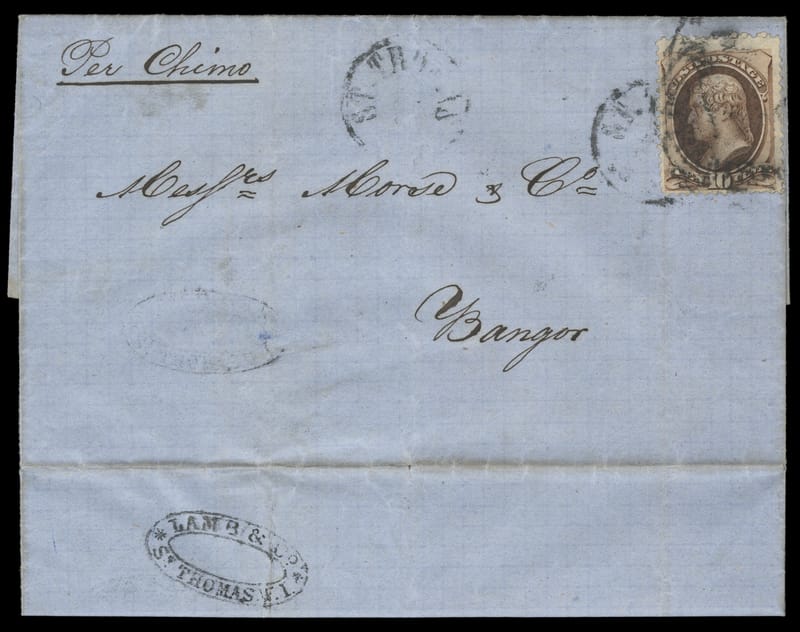 Per Chimo
ST. THOMAS
U.S. POSTAGE
10
Messrs Morse & Co
Bangor
* LAMB & Co. *
St. THOMAS V.I.